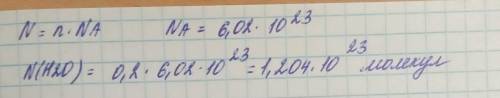 N = n · NA    NA = 6,02 · 10²³
N(H2O) = 0,2 · 6,02 · 10²³ = 1,204 · 10²³ молекул